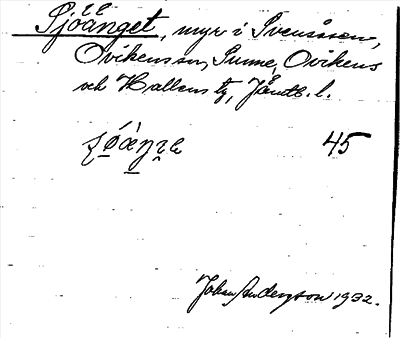 Sjöänget, myr i Svensåsen,
Ovikens sn, Sunne, Ovikens
och Hallens tg, Jämtl. l.
45
Johan Anderzson 1932.